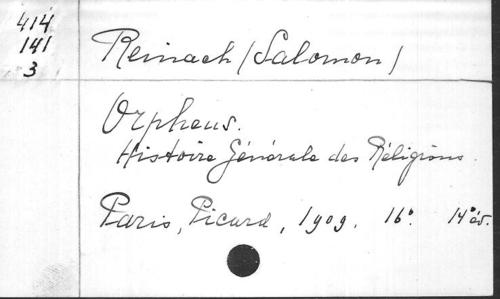 414
141
3
Reinach (Salomon)
Orpheus.
Histoire Générale des Réligions.
Paris, Picard, 1909. 16°. 14e éd.